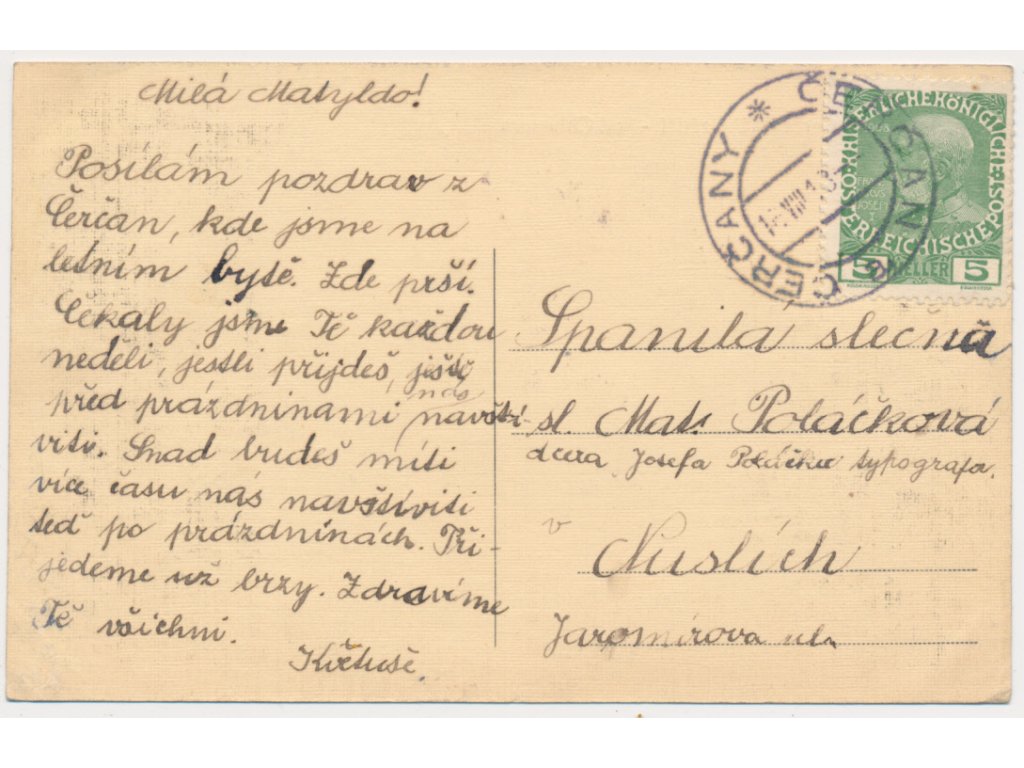 Milá Matyldo!
Posílám pozdrav z
Čerčan, kde jsme na
letním bytě. Zde prší.
Čekaly jsme Tě každou
neděli, jestli přijdeš, ještě
před prázdninami nás navští-
viti. Snad budeš míti
více času nás navštíviti
teď po prázdninách. Při-
jedeme už brzy. Zdravíme
Tě všichni.
Květuše.
ČERČANY * ČERČAN
KAISERLICHE KÖNIGLICHE
ÖSTERREICHISCHE POST
5 HELLER 5
Spanilá slečna
sl. Mat. Poláčková
dcera Josefa Poláčka typografa.
v
Nuslích
Jaromírova ul.